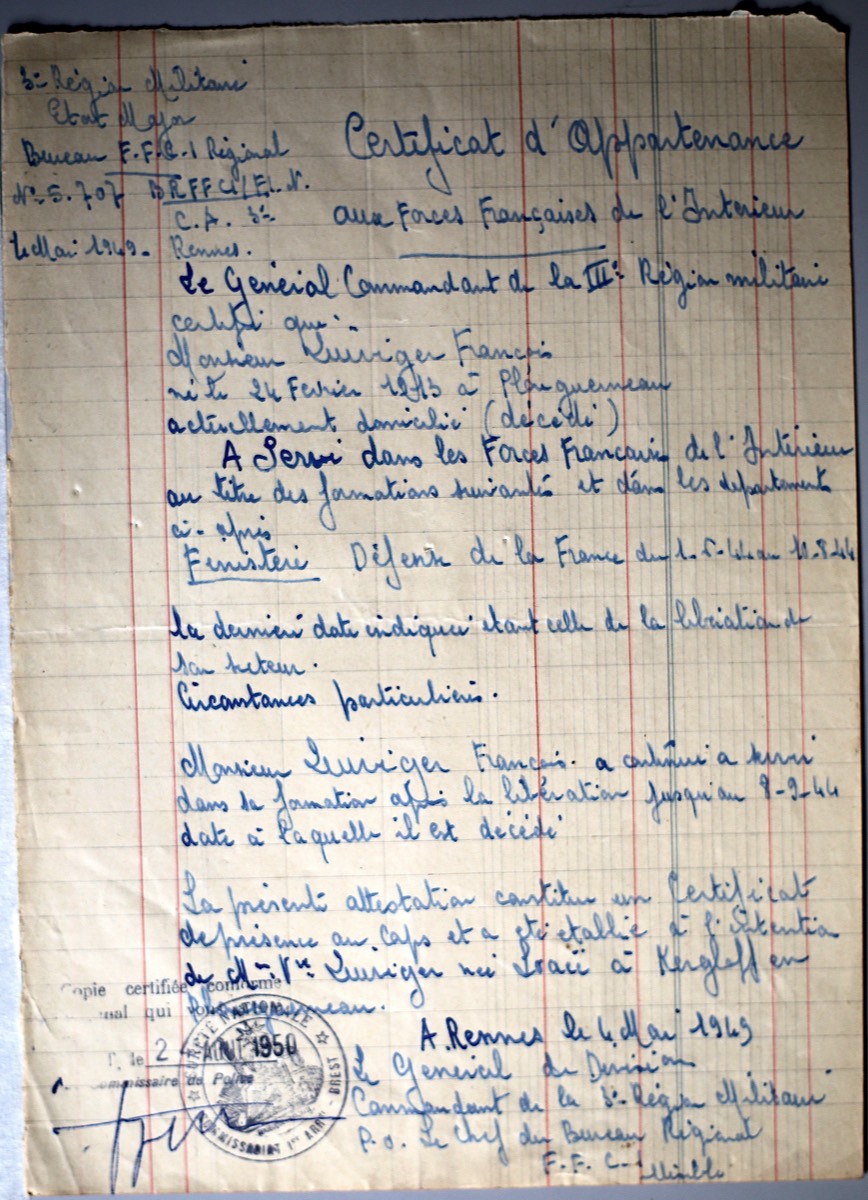 3e Région Militaire
Etat Major
Bureau F.F.C.I Régional
No 5.707 BRFFCI/FI.N.
C.A. 3e
le Mai 1949. Rennes.
Certificat d'Appartenance
aux Forces Françaises de l'Interieur
Le Genéral Commandant de la IIIe Région militaire
certifi que :
Monsieur François
né le 24 Fevrier 1913 à Plouguerneau
actuellement domicilié (décédé)
A Servi dans les Forces Francaises de l'Intérieur
au titre des formations suivantes et dans les departements
ci-après
Finistère Défense de la France du au 10-8-44
la dernière date indiquée étant celle de la libération de
son secteur.
Circonstances particulières.
Monsieur François. a continué a servi
dans sa formation après la libération jusqu'au 8-9-44
date à laquelle il est décédé
La présente attestation constitue un Certificat
de présence au Caps et a été établie à l'intention
de Mme Vve née à en
Plouguerneau.
Copie certifiée conforme
qui
le 2 AOUT 1950
Commissaire de Police
SURETE NATIONALE
COMMISSARIAT 1er ARRt BREST
A. Rennes le 4 Mai 1949
Le Genéral de Division
Commandant de la 3e Région Militaire
P.o. Le Chef du Bureau Régional
F.F.C.I